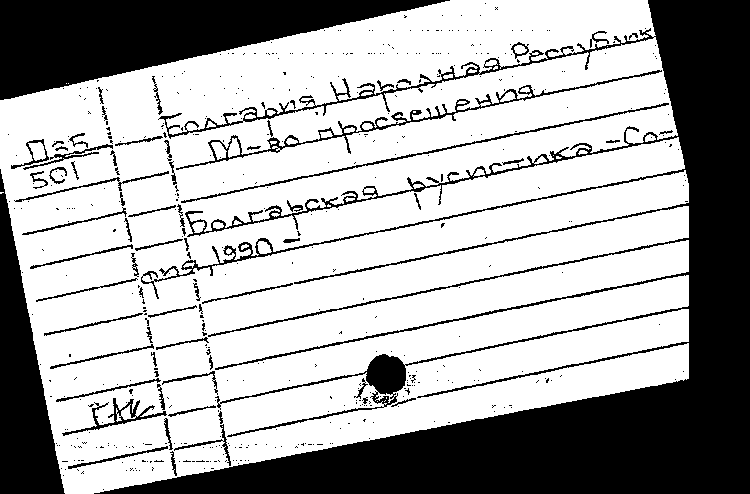 Болгария, Народная Республик
П35
501
М-во просвещения.
Болгарская русистика.-Со-
фия, 1990 -